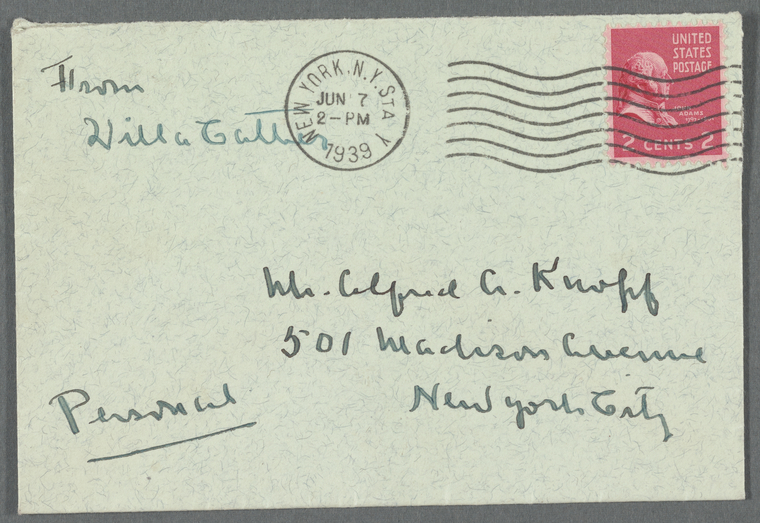 From
Willa Cather
NEW YORK, N.Y. STA Y
JUN 7
2-PM
1939
UNITED
STATES
POSTAGE
JOHN
ADAMS
2 CENTS 2
Mr. Alfred A. Knopf
501 Madison Avenue
New York City
Personal